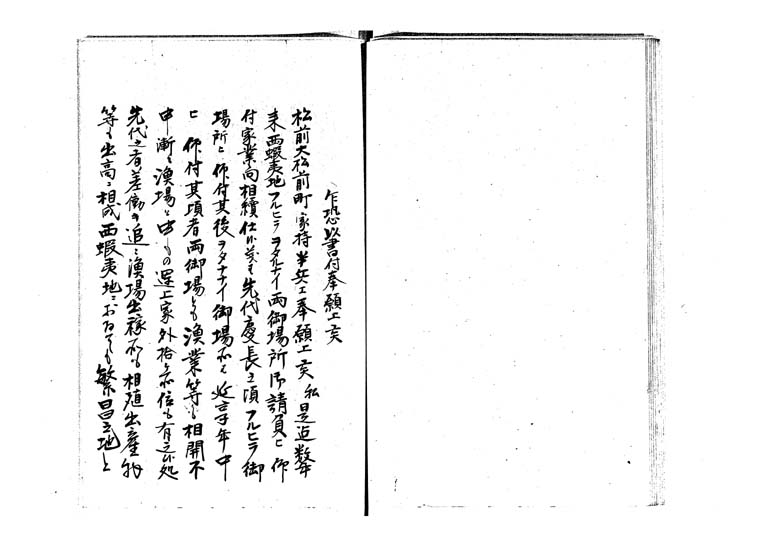 乍恐以書付奉願上候
松前大松前町家持半兵エ奉願上候私是迄数年
来西蝦夷地フルヒラヲタルナイ両御場所御請負ニ仰
付家業向相續仕候義も先代慶長之頃フルヒラ御
場所ニ仰付其後ヲタナナイ御場所ハ延享年中
ニ仰付其頃者両御場とも漁業等も相開不
申漸々漁場と申もの運上家外格之位も有之候処
先代之者差働キ追々漁場出稼所も相殖出産物
等も出高ニ相成西蝦夷地ニおゐても繁昌之地と